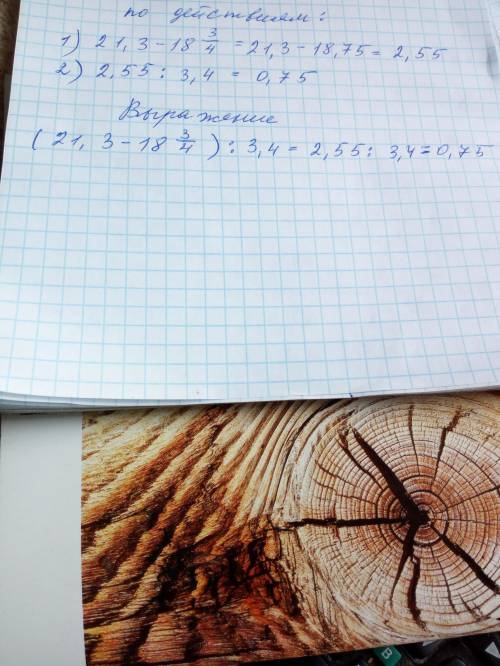 по действиям:
1) 21,3 - 18 3/4 = 21,3 - 18,75 = 2,55
2) 2,55 : 3,4 = 0,75
Выражение
(21,3 - 18 3/4) : 3,4 = 2,55 : 3,4 = 0,75
B